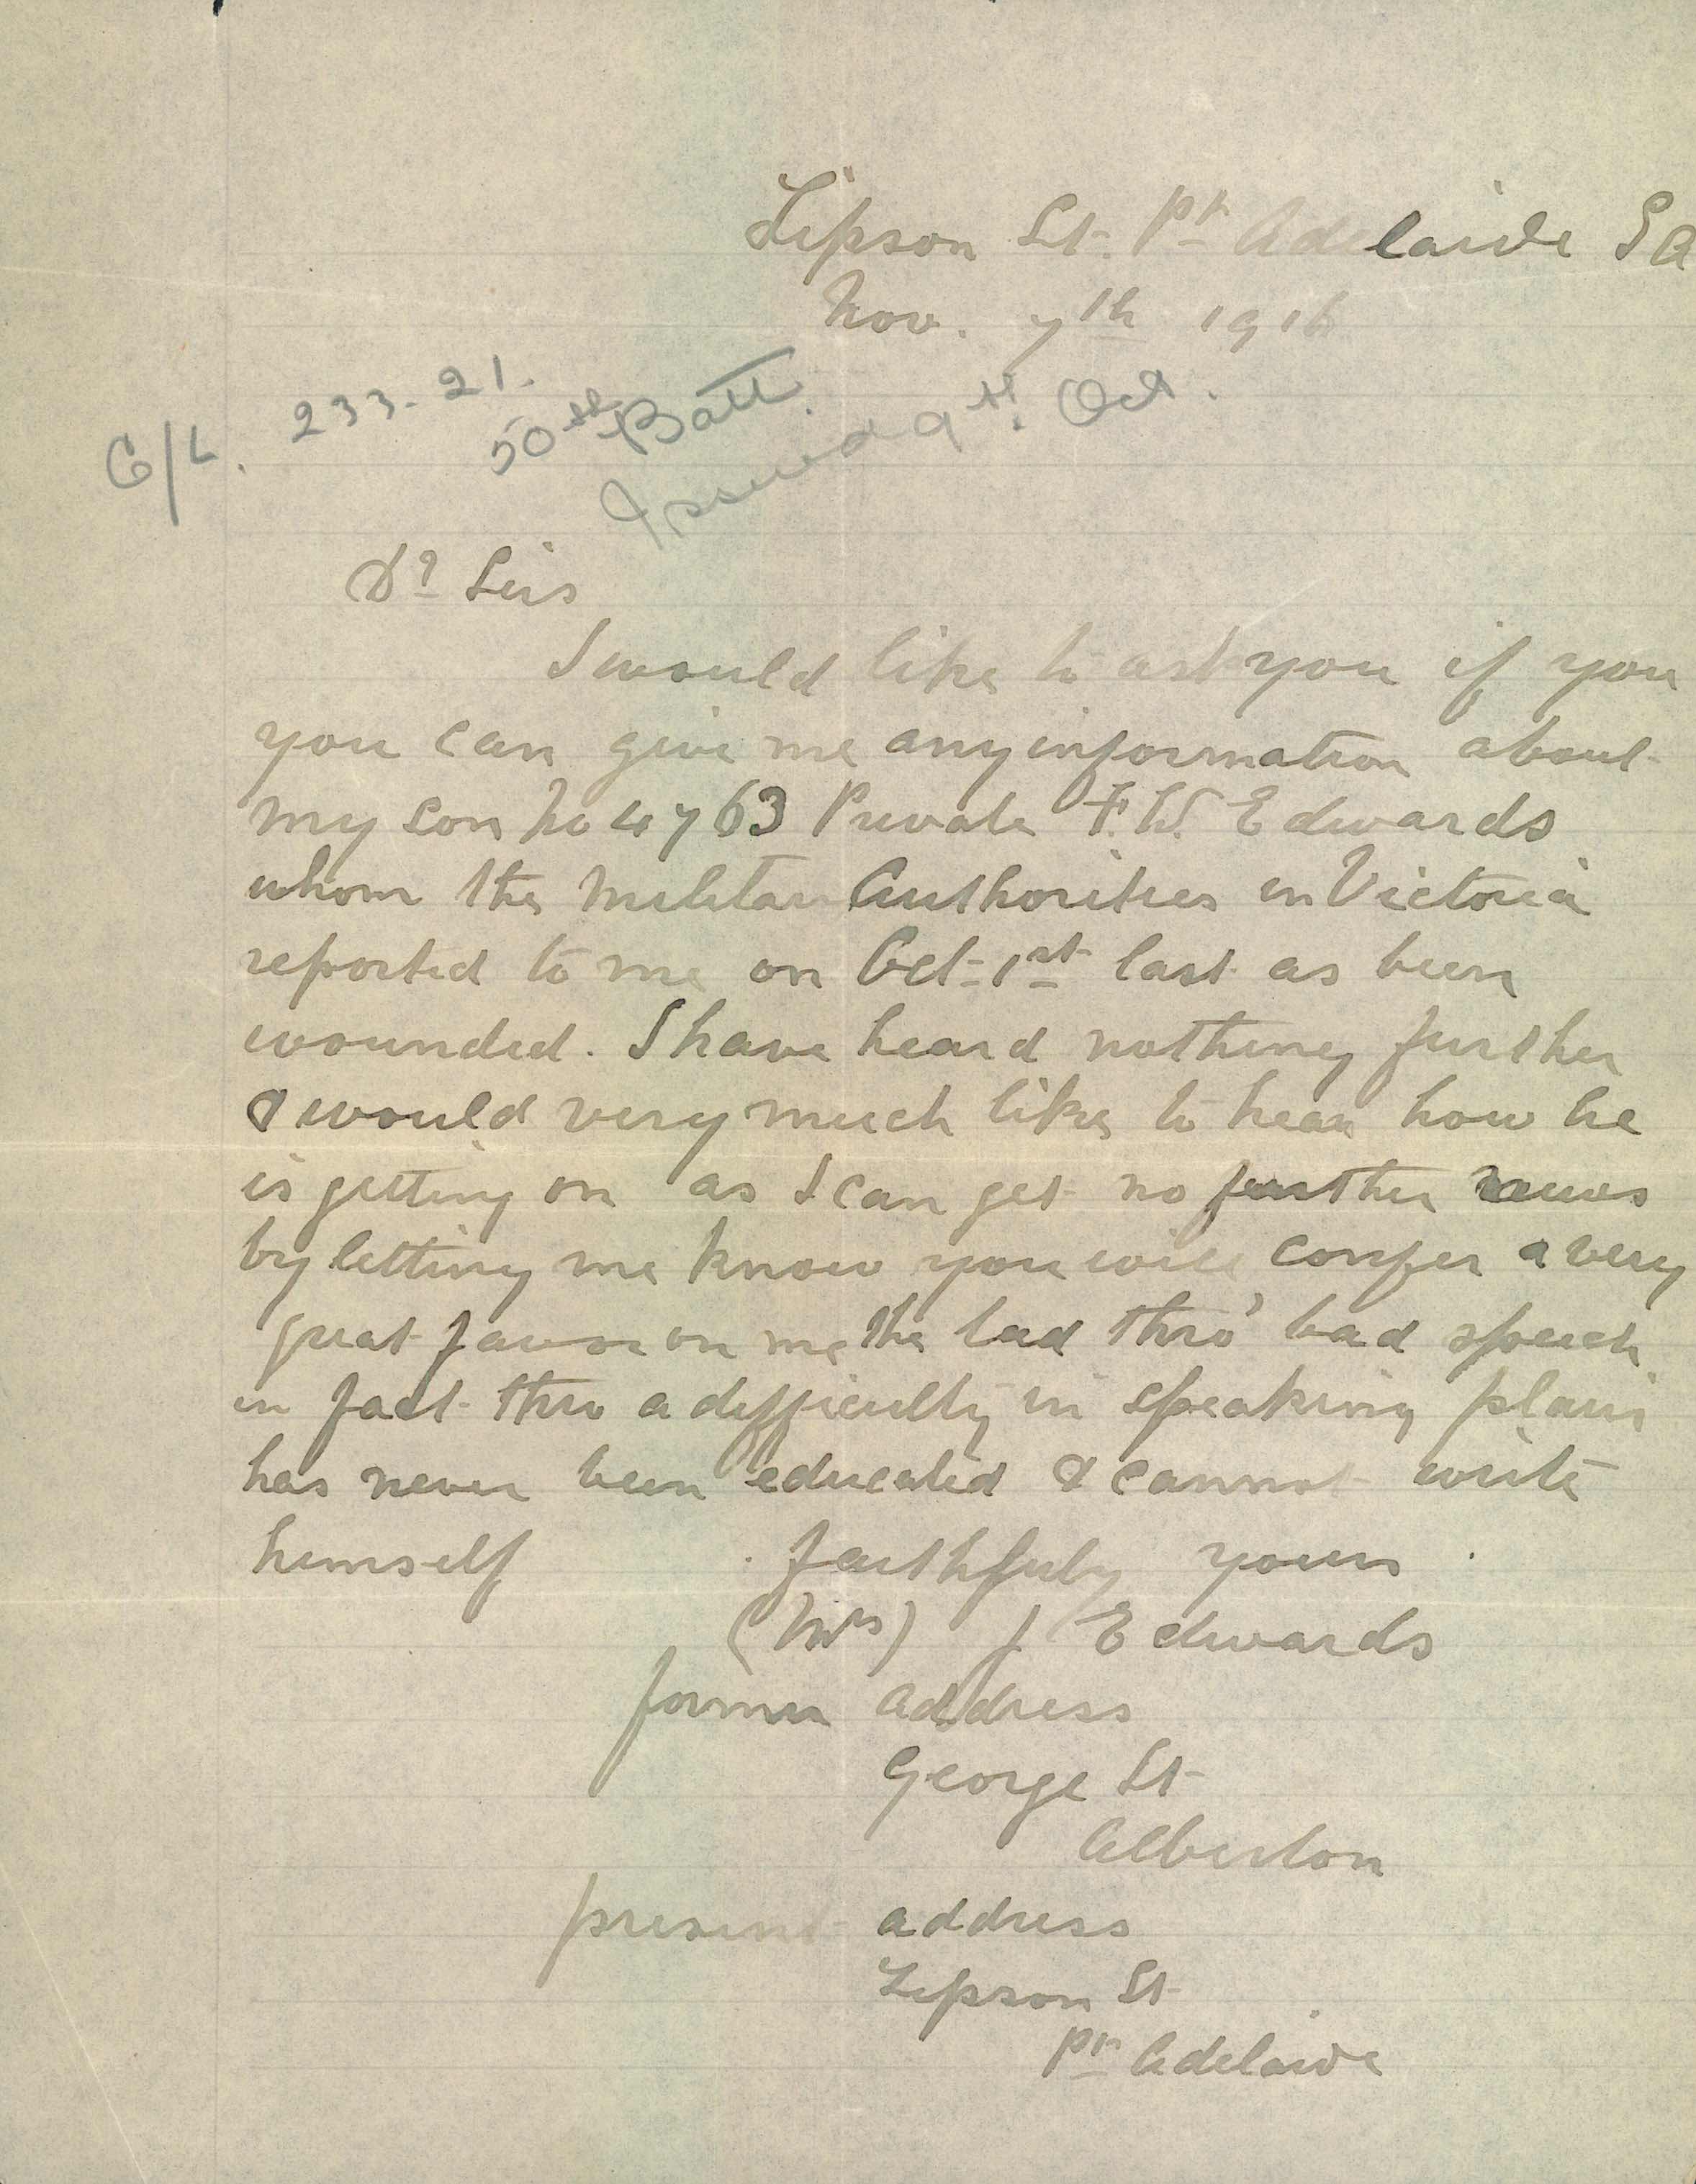 Lipson St. Pt Adelaide S A
Nov. 7th 1916
C/L. 233-21.
50th Batt.
Issued 9th. Oct.
Dr Sirs
I would like to ask you if you
you can give me any information about
my son No 4763 Private F. W. Edwards
whom the Militar Authorities in Victoria
reported to me on Oct-1st last as been
wounded. I have heard nothing further
& would very much like to hear how he
is getting on as I can get no further news
by letting me know you will confer a very
great favor on me the lad thro' bad speech
in fact thro a difficulty in speaking plain
has never been educated & cannot write
himself faithfuly yours
(Mrs) J Edwards
former address
George St
Alberton
present address
Lipson St
Pt Adelaide